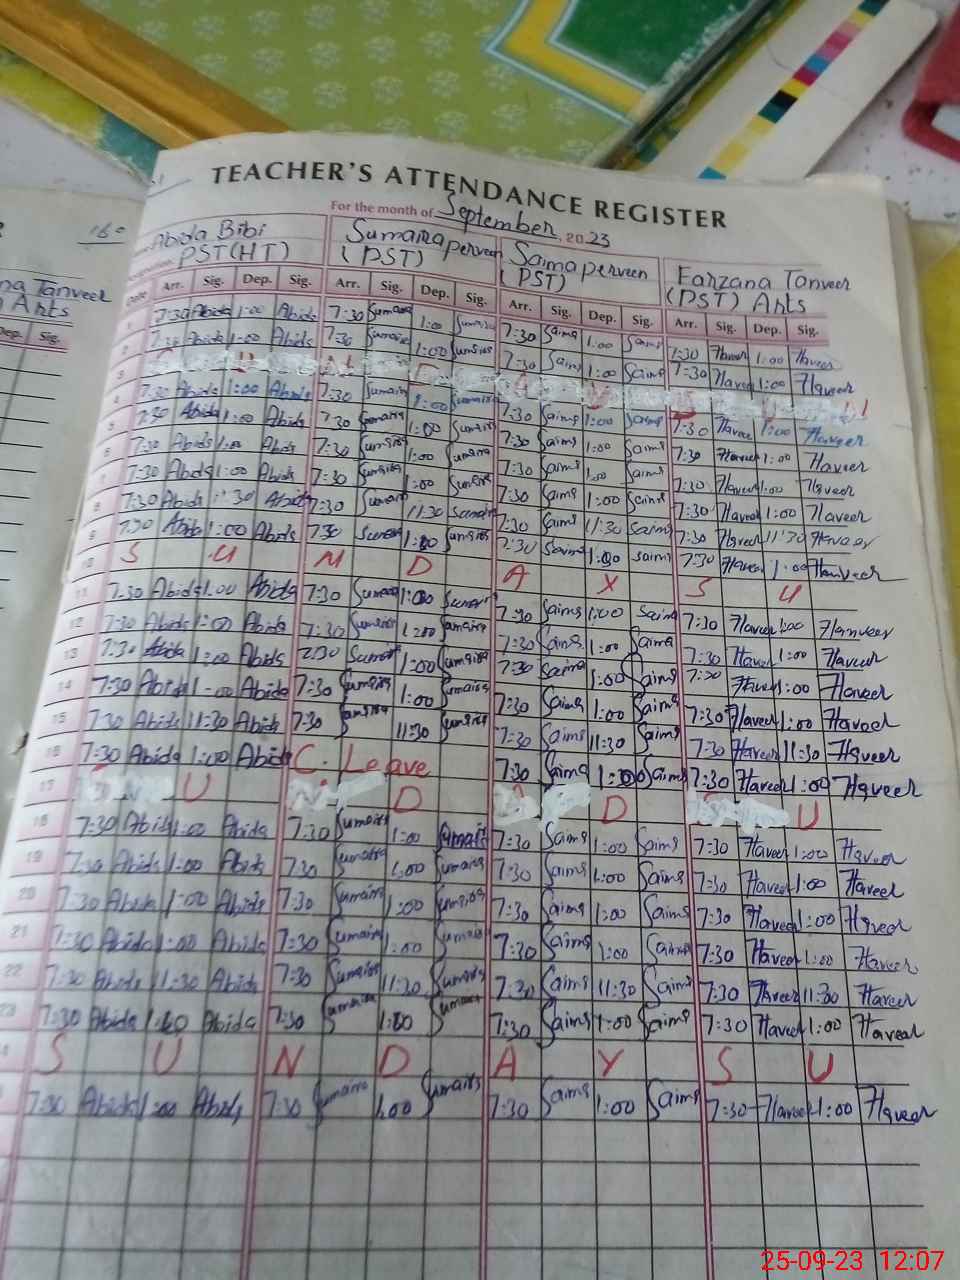 TEACHER'S ATTENDANCE REGISTER
For the month of September, 2023
Abida Bibi PST(HT) Sumaira perveen (PST) Saima perveen (PST) Farzana Tanveer (PST) Arts
Date Arr. Sig. Dep. Sig. Arr. Sig. Dep. Sig. Arr. Sig. Dep. Sig. Arr. Sig. Dep. Sig.
1 7:30 Abida 1:00 Abida 7:30 Sumaira 1:00 Sumaira 7:30 Saima 1:00 Saima 7:30 Haveer 1:00 Haveer
2 7:30 Abida 1:00 Abida 7:30 Sumaira 1:00 Sumaira 7:30 Saima 1:00 Saima 7:30 Haveer 1:00 Haveer
3
4 7:30 Abida 1:00 Abida 7:30 Sumaira 1:00 Sumaira 7:30 Saima 1:00 Saima 7:30 Haveer 1:00 Haveer
5 7:30 Abida 1:00 Abida 7:30 Sumaira 1:00 Sumaira 7:30 Saima 1:00 Saima 7:30 Haveer 1:00 Haveer
6 7:30 Abida 1:00 Abida 7:30 Sumaira 1:00 Sumaira 7:30 Saima 1:00 Saima 7:30 Haveer 1:00 Haveer
7 7:30 Abida 1:00 Abida 7:30 Sumaira 1:00 Sumaira 7:30 Saima 1:00 Saima 7:30 Haveer 1:00 Haveer
8 7:30 Abida 11:30 Abida 7:30 Sumaira 11:30 Sumaira 7:30 Saima 11:30 Saima 7:30 Haveer 11:30 Haveer
9 7:30 Abida 1:00 Abida 7:30 Sumaira 1:00 Sumaira 7:30 Saima 1:00 Saima 7:30 Haveer 1:00 Hanveer
10 S U N D A Y S U
11 7:30 Abida 1:00 Abida 7:30 Sumaira 1:00 Sumaira 7:30 Saima 1:00 Saima 7:30 Haveer 1:00 Hanveer
12 7:30 Abida 1:00 Abida 7:30 Sumaira 1:00 Sumaira 7:30 Saima 1:00 Saima 7:30 Haveer 1:00 Haveer
13 7:30 Abida 1:00 Abida 7:30 Sumaira 1:00 Sumaira 7:30 Saima 1:00 Saima 7:30 Haveer 1:00 Haveer
14 7:30 Abida 1:00 Abida 7:30 Sumaira 1:00 Sumaira 7:30 Saima 1:00 Saima 7:30 Haveer 1:00 Haveer
15 7:30 Abida 11:30 Abida 7:30 Sumaira 11:30 Sumaira 7:30 Saima 11:30 Saima 7:30 Haveer 11:30 Haveer
16 7:30 Abida 1:00 Abida C. Leave 7:30 Saima 1:00 Saima 7:30 Haveer 1:00 Haveer
17 U N D D U
18 7:30 Abida 1:00 Abida 7:30 Sumaira 1:00 Sumaira 7:30 Saima 1:00 Saima 7:30 Haveer 1:00 Haveer
19 7:30 Abida 1:00 Abida 7:30 Sumaira 1:00 Sumaira 7:30 Saima 1:00 Saima 7:30 Haveer 1:00 Haveer
20 7:30 Abida 1:00 Abida 7:30 Sumaira 1:00 Sumaira 7:30 Saima 1:00 Saima 7:30 Haveer 1:00 Haveer
21 7:30 Abida 1:00 Abida 7:30 Sumaira 1:00 Sumaira 7:30 Saima 1:00 Saima 7:30 Haveer 1:00 Haveer
22 7:30 Abida 11:30 Abida 7:30 Sumaira 11:30 Sumaira 7:30 Saima 11:30 Saima 7:30 Haveer 11:30 Haveer
23 7:30 Abida 1:00 Abida 7:30 Sumaira 1:00 Sumaira 7:30 Saima 1:00 Saima 7:30 Haveer 1:00 Haveer
S U N D A Y S U
7:30 Abida 1:00 Abida 7:30 Sumaira 1:00 Sumaira 7:30 Saima 1:00 Saima 7:30 Haveer 1:00 Haveer
na Tanveer
Arts
Dep. Sig.
25-09-23 12:07